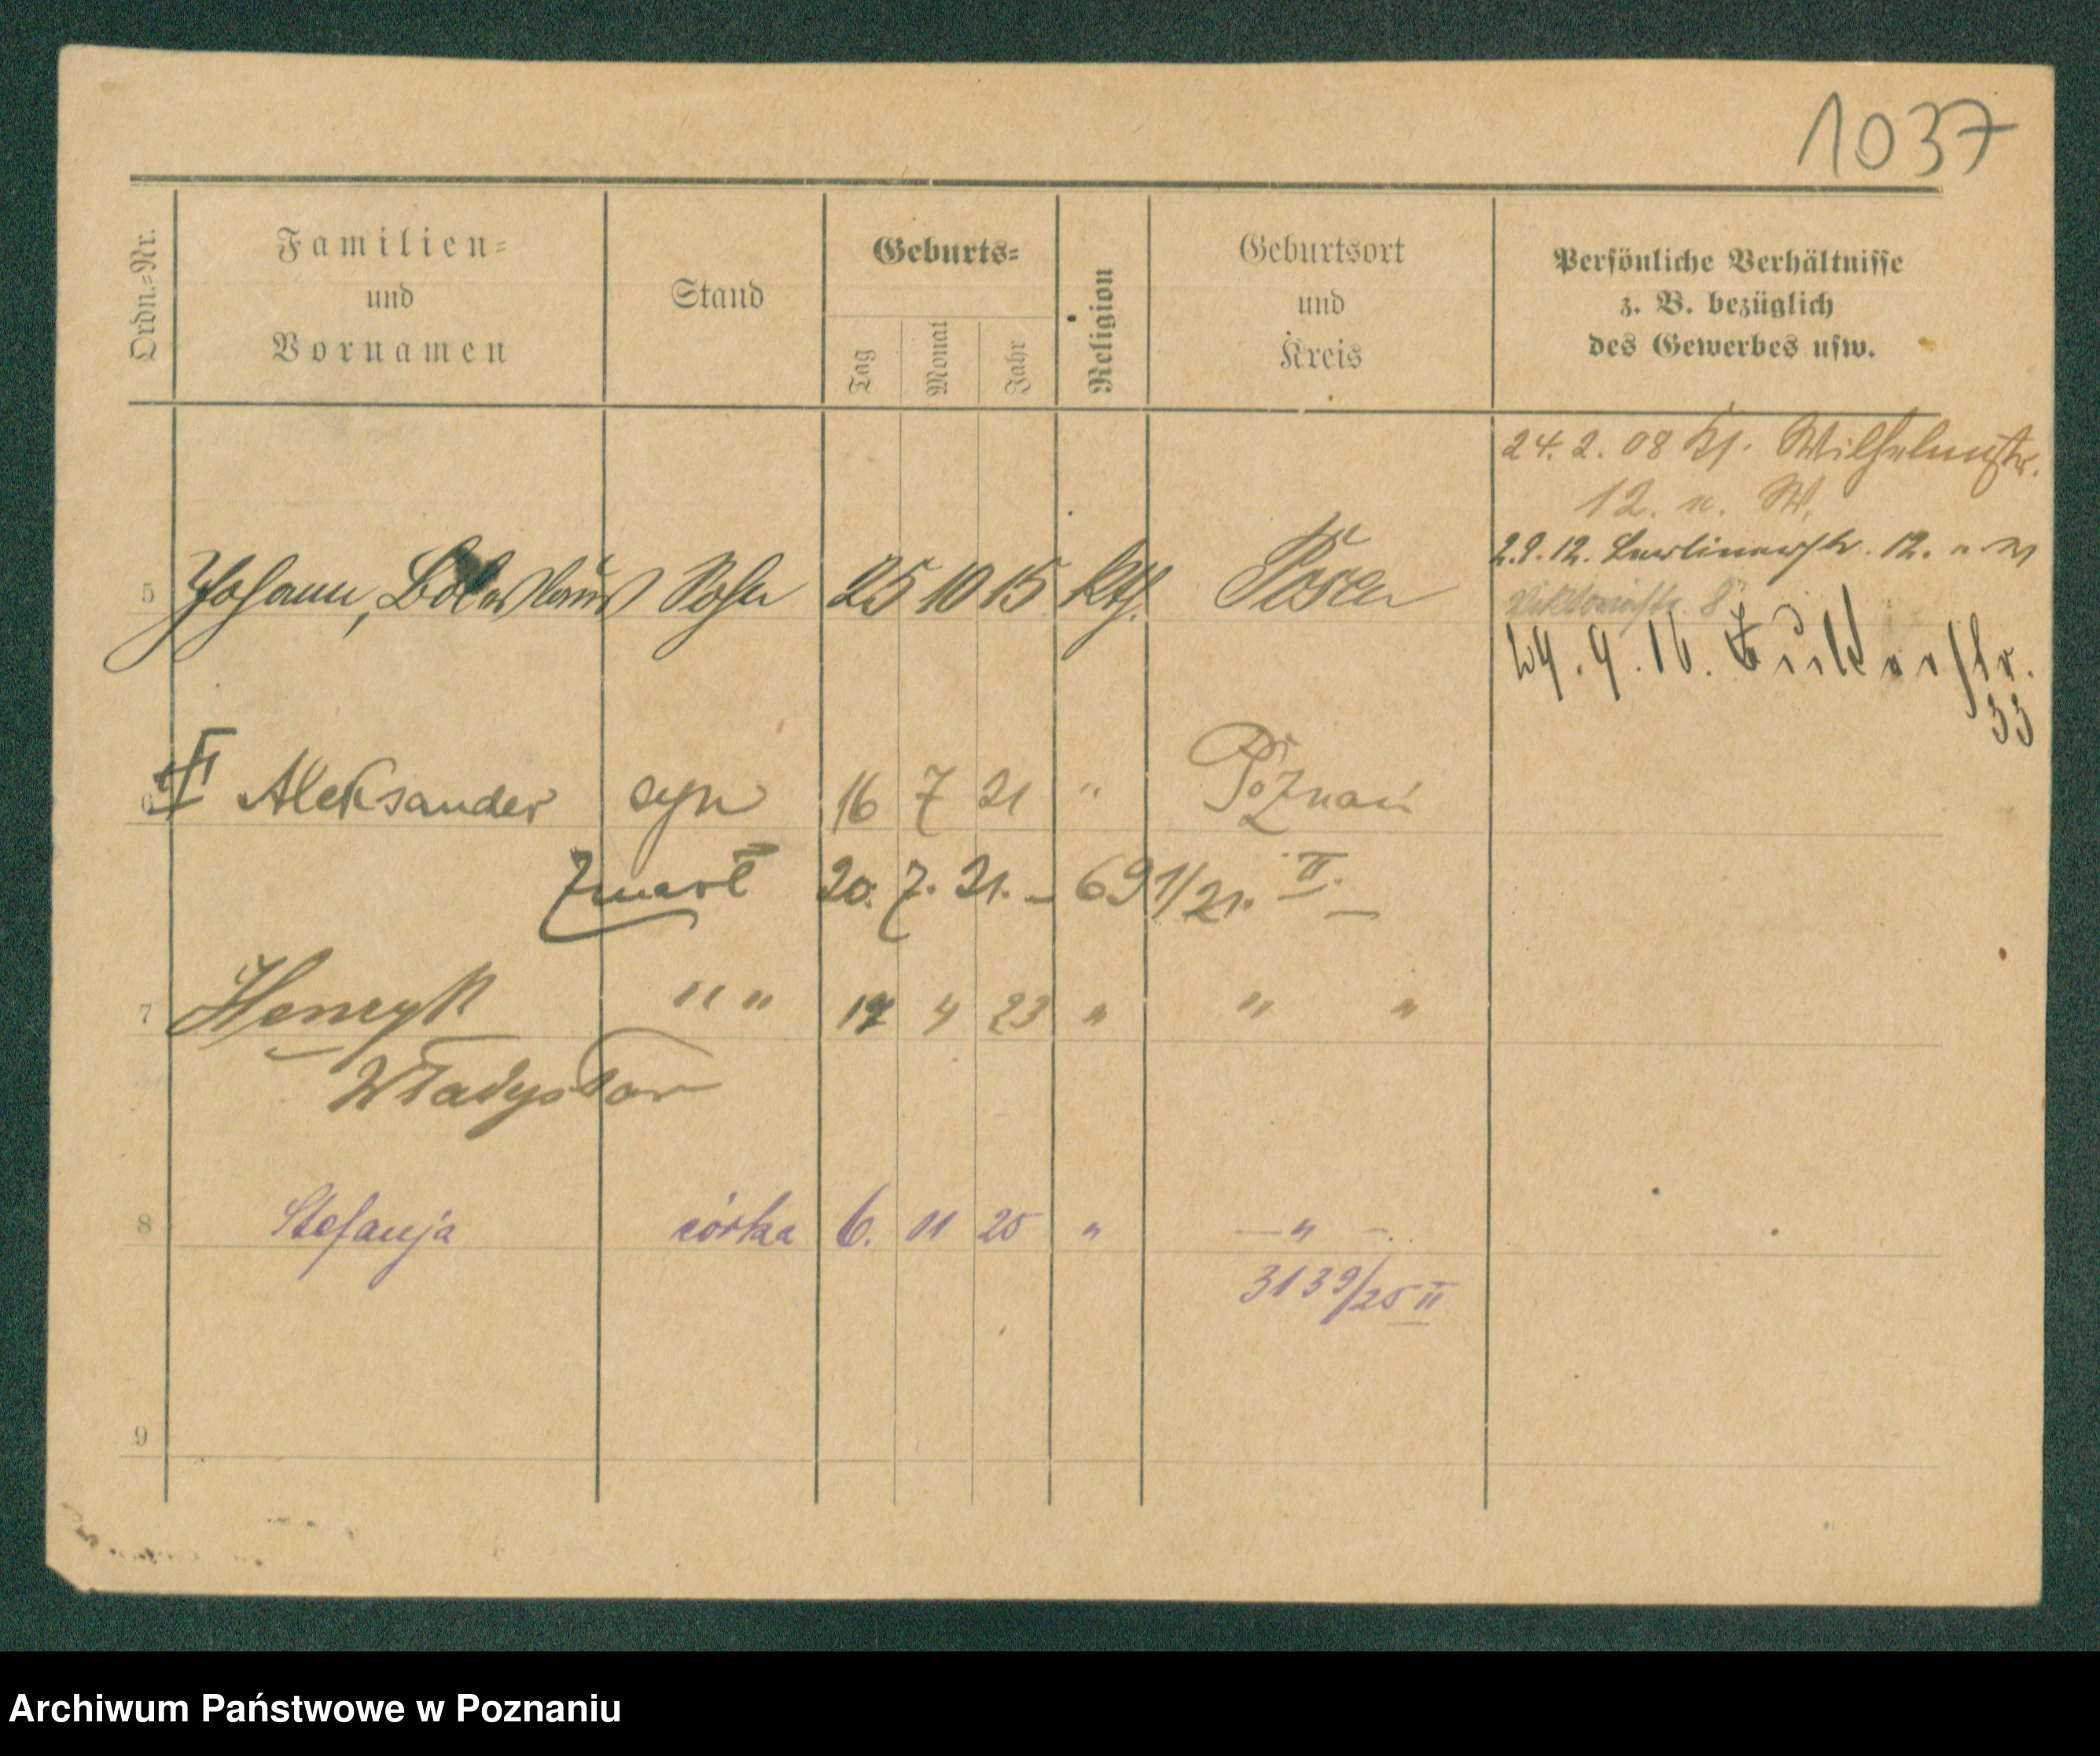 1037
Ordn.-Nr.
Familien-
und
Vornamen
Stand
Geburts-
Tag Monat Jahr
Religion
Geburtsort
und
Kreis
Persönliche Verhältnisse
z. B. bezüglich
des Gewerbes usw.
24. 2. 08 Kl. Wilhelmstr.
12. n. W.
2.9.12. Berlinerstr. 12.
5 Johann, Boleslaus Sohn 25 10 15 kth. Posen
Viktoriastr. 8
24.9.16.
33
6 Aleksander syn 16 7 21 " Poznań
Zmarł 20. 7. 21. – 691/21. II.
7 Henryk " " 4 23 " " "
Władysław
8 Stefanja córka 6. 11 25 " — " —
3139/25 II
9
Archiwum Państwowe w Poznaniu